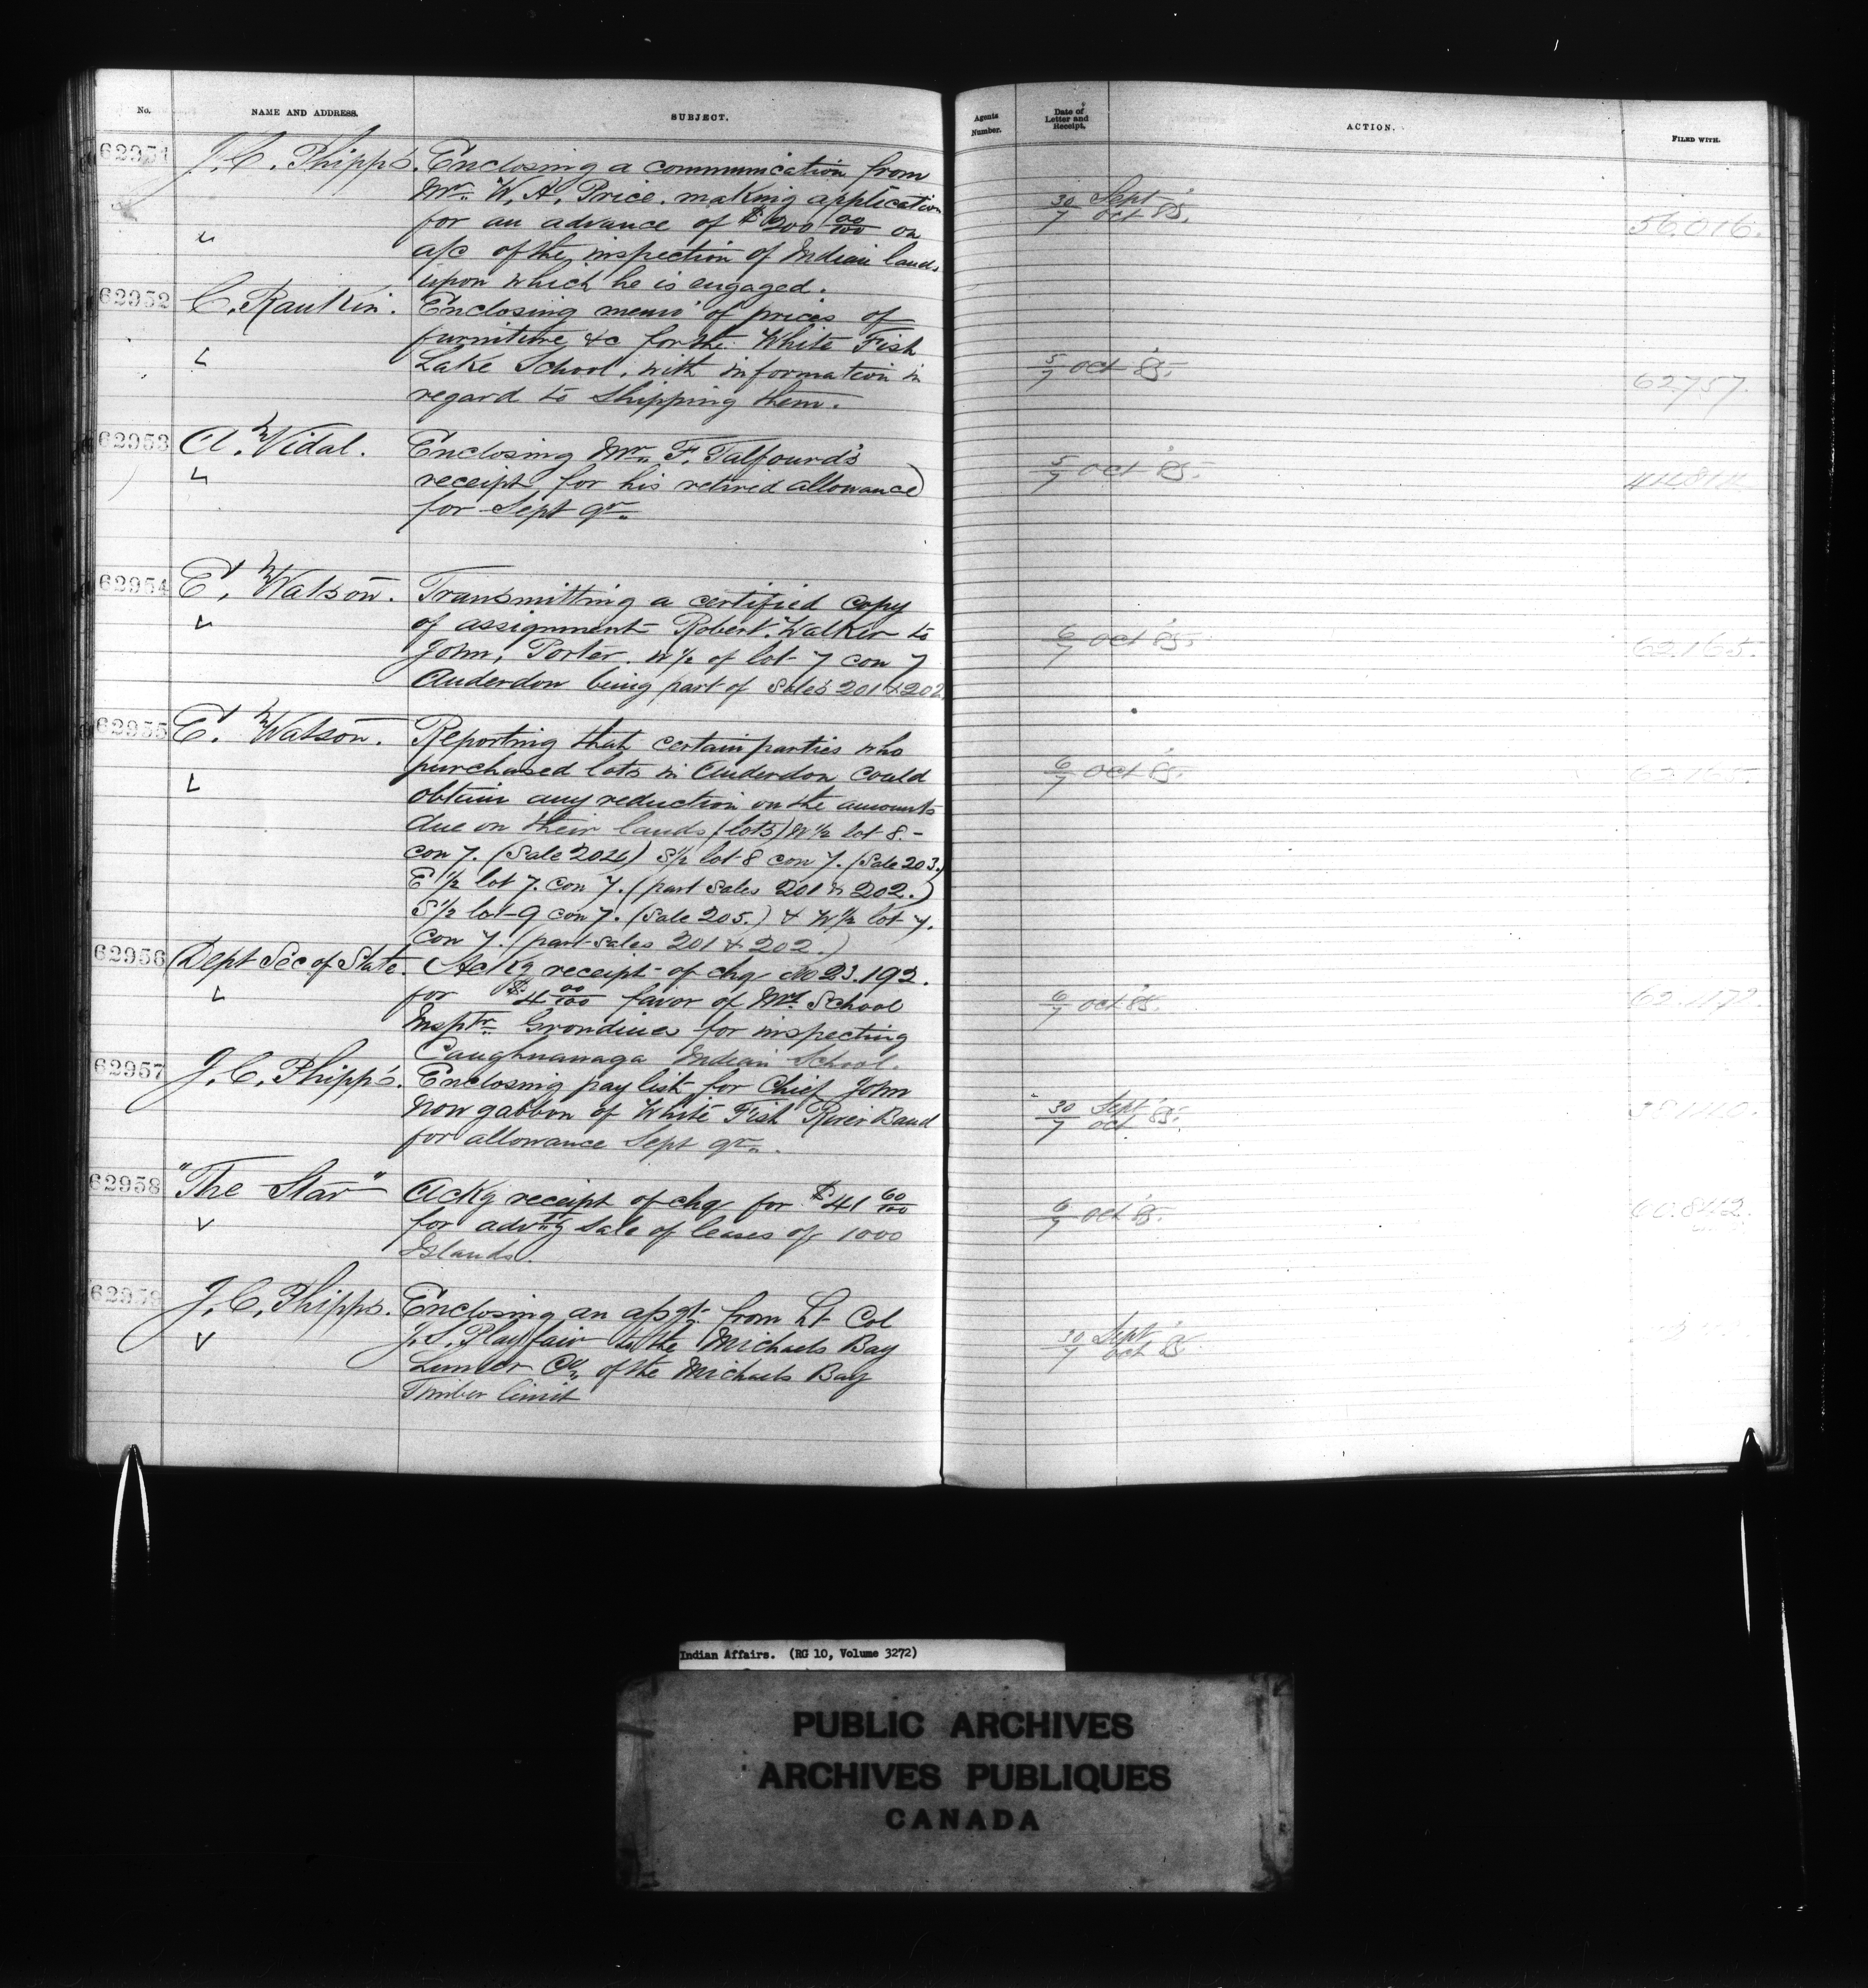 No.
NAME AND ADDRESS.
SUBJECT.
Agents Number.
Date of Letter and Receipt.
ACTION.
FILED WITH.
62951 J. C. Phipps. Enclosing a communication from
Mr. W. A. Price. making application
for an advance of $ 200 00/100 on
a/c of the inspection of Indian lands
upon which he is engaged.
30/7 Sept/Oct 85.
56.016.
62952 C. Rankin. Enclosing memo of prices of
furniture &c for the White Fish
Lake School, with information in
regard to shipping them.
5/7 Oct 85.
62757.
62953 A. Vidal. Enclosing Mr. F. Talfourd's
receipt for his retired allowance
for Sept qr.
5/7 Oct 85.
62954 E. Watson. Transmitting a certified copy
of assignment Robert. Walker to
John, Porter. W 1/2 of lot 7 con 7
Anderdon being part of Sales 201 & 202.
6/7 Oct 85.
62.165.
62955 E. Watson. Reporting that certain parties who
purchased lots in Anderdon could
obtain any reduction on the amounts
due on their lands (lots) W 1/2 lot 8.-
con 7. (Sale 204) S 1/2 lot 8 con 7. (Sale 203.)
E 1/2 lot 7. con 7. (part sales 201 & 202.)
S 1/2 lot 9 con 7. (Sale 205.) & W 1/2 lot 7.
con 7. (part sales 201 & 202.)
6/7 Oct 85.
62.165.
62956 Dept Sec of State. Ackg receipt of chq No 23.192.
for $ 4 00/100 favor of Mr. School
Insptr. Grondines for inspecting
Caughnawaga Indian School.
6/7 Oct 85.
62957 J. C. Phipps. Enclosing pay list for Chief John
Now gabbon of White Fish River Band
for allowance Sept qr.
30/7 Sept/Oct 85.
62958 "The Star" Ackg receipt of chq for $ 41 60/100
for advtg sale of leases of 1000
Islands.
6/7 Oct 85.
62959 J. C. Phipps. Enclosing an asgt. from Lt Col
J. S. Playfair to the Michaels Bay
Lumber Co. of the Michaels Bay
Timber limit
30/7 Sept/Oct 85.
Indian Affairs. (RG 10, Volume 3272)
PUBLIC ARCHIVES
ARCHIVES PUBLIQUES
CANADA